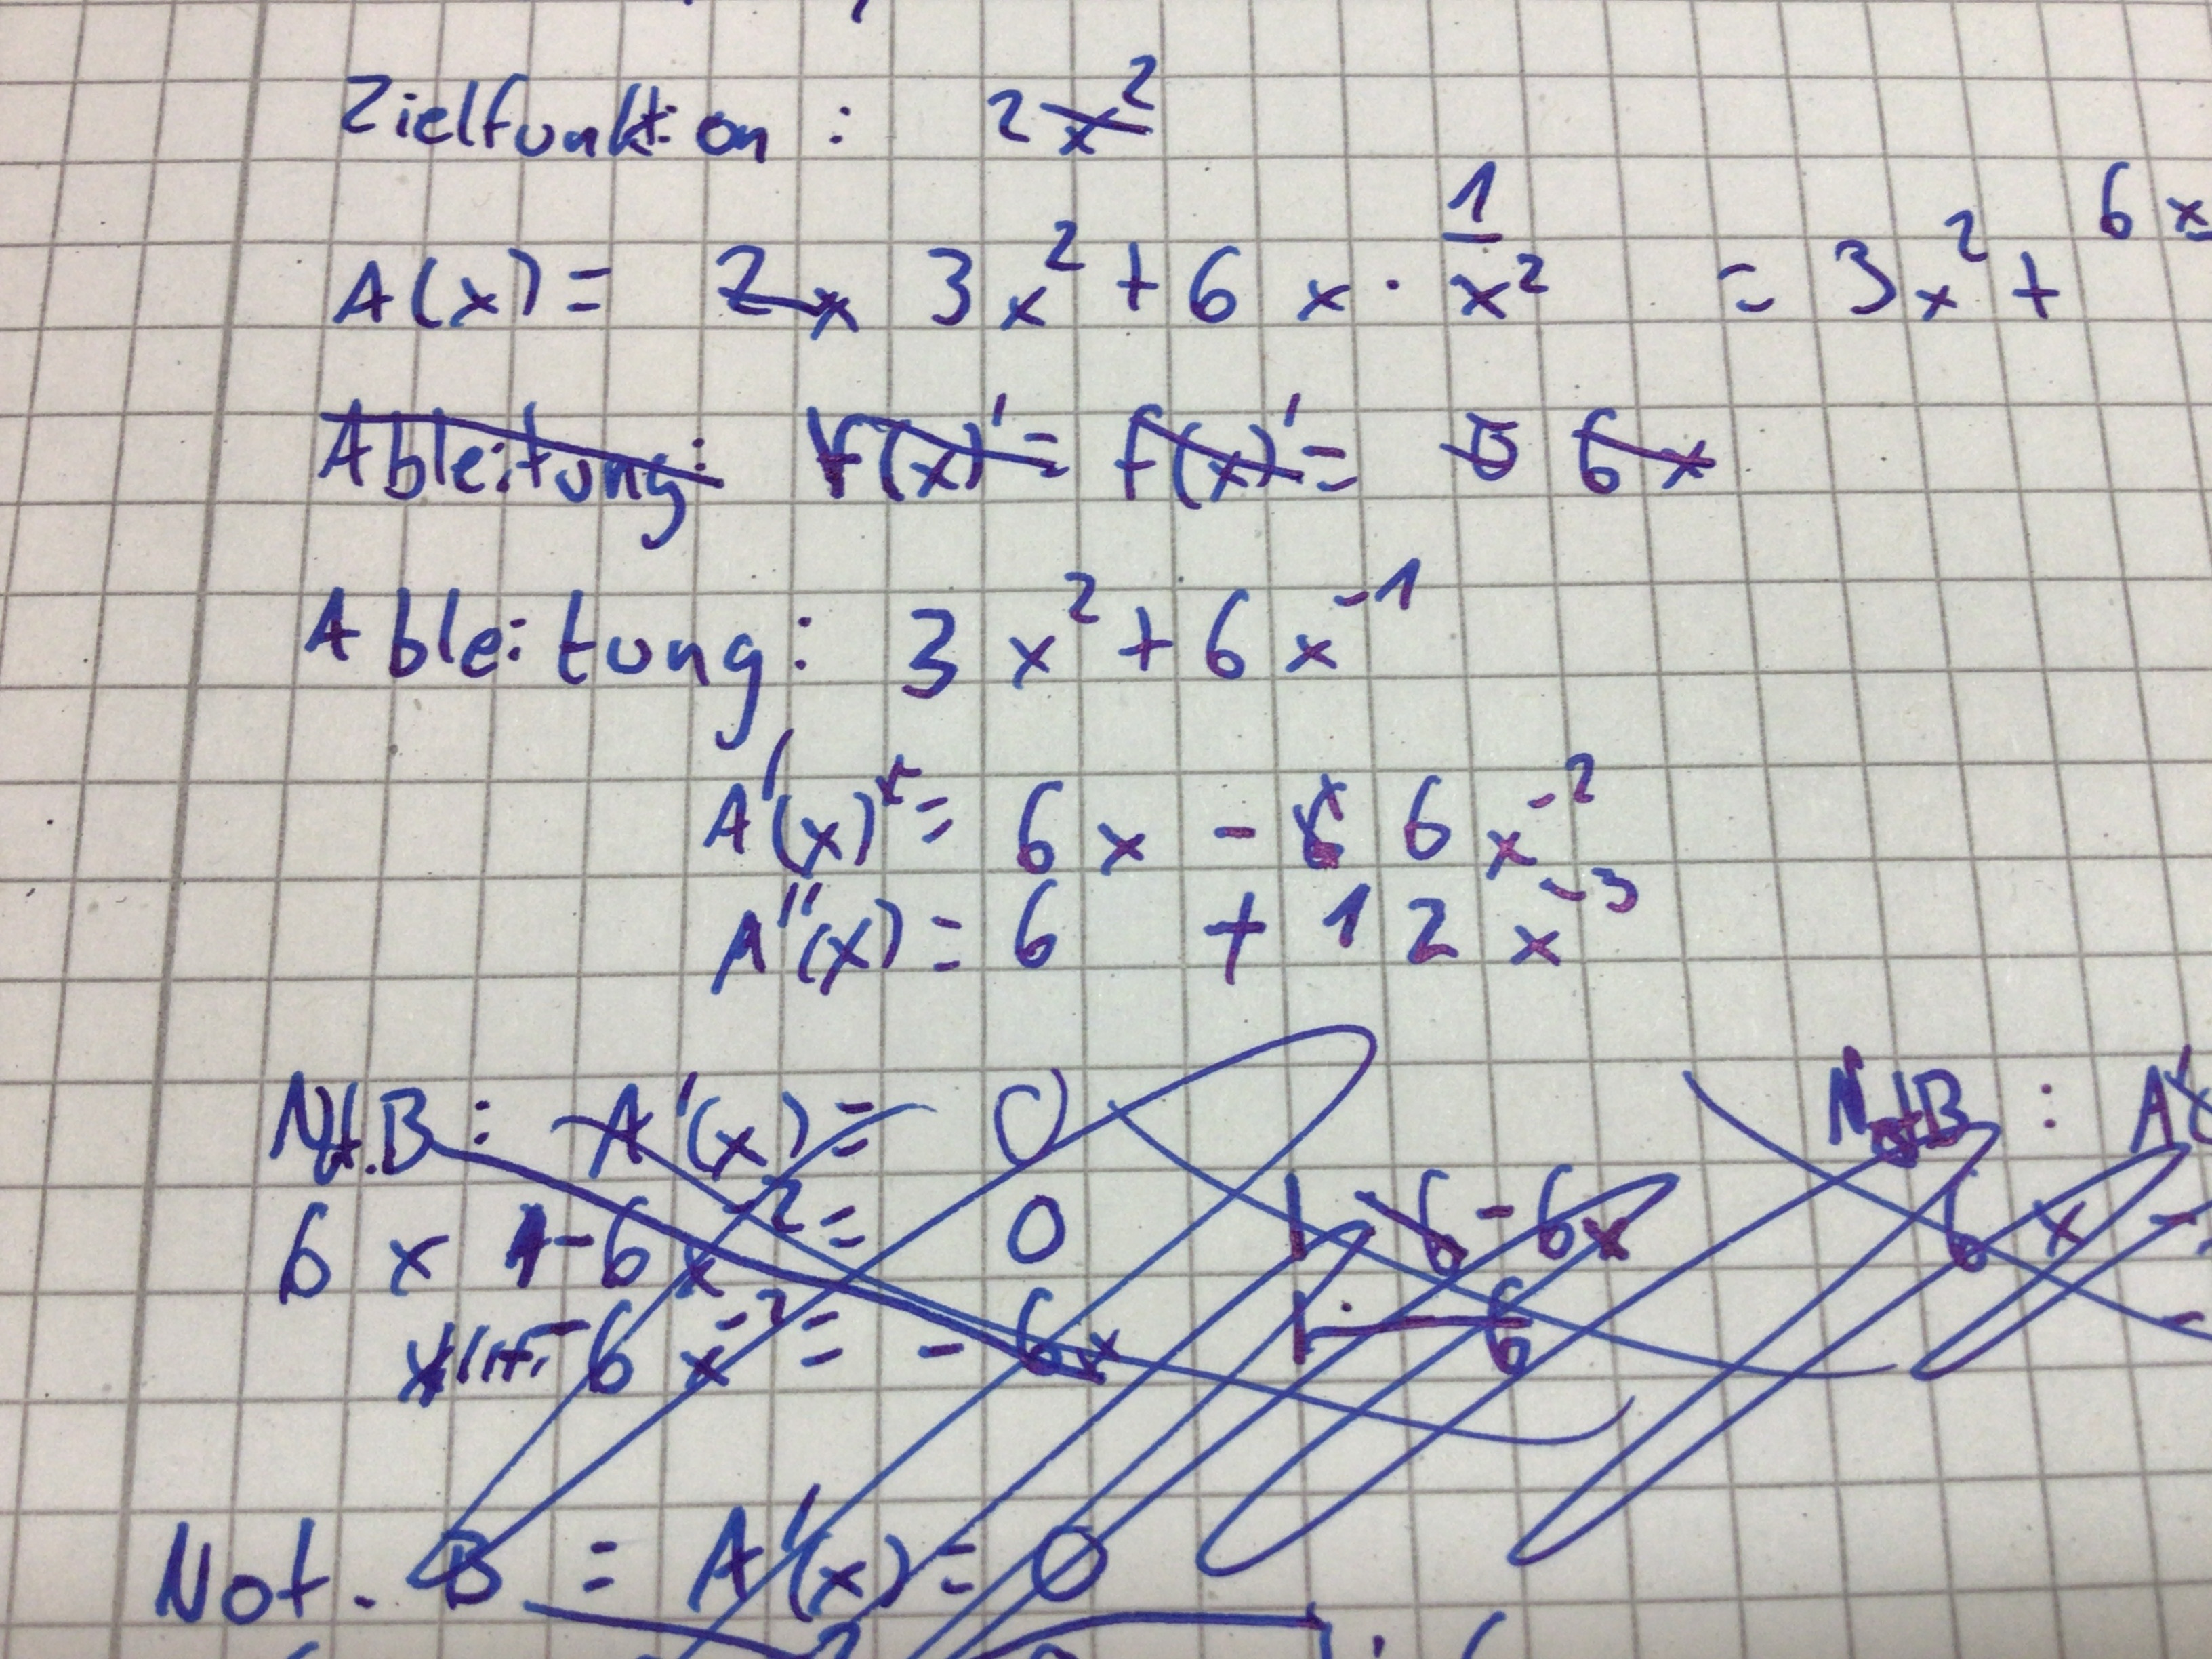 Zielfunktion: 2x²
A(x) = 2x 3x² + 6x · 1/x² = 3x² + 6x
Ableitung: f(x)' = f(x)' = 5 6x
Ableitung: 3x² + 6x⁻¹
A'(x) = 6x - 6 6x⁻²
A''(x) = 6 + 12x⁻³
Not.B: A'(x) = 0 Not.B: A'(
6x - 6x⁻² = 0 | -6 - 6x 6x -
-6x⁻² = -6x |: 6 -
Not. B = A'(x) = 0